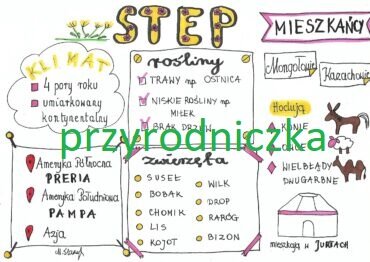 STEP
MIESZKAŃCY
KLIMAT
4 pory roku
umiarkowany
kontynentalny
rośliny
TRAWY np. OSTNICA
NISKIE ROŚLINY np
MIŁEK
BRAK DRZEW
Mongolowie
Kazachowie
Hodują
KONIE
OWCE
WIELBŁĄDY
DWUGARBNE
przyrodniczka
Ameryka Północna
PRERIA
Ameryka Południowa
PAMPA
Azja
zwierzęta
SUSEŁ
BOBAK
CHOMIK
LIS
KOJOT
WILK
DROP
RARÓG
BIZON
mieszkają w JURTACH